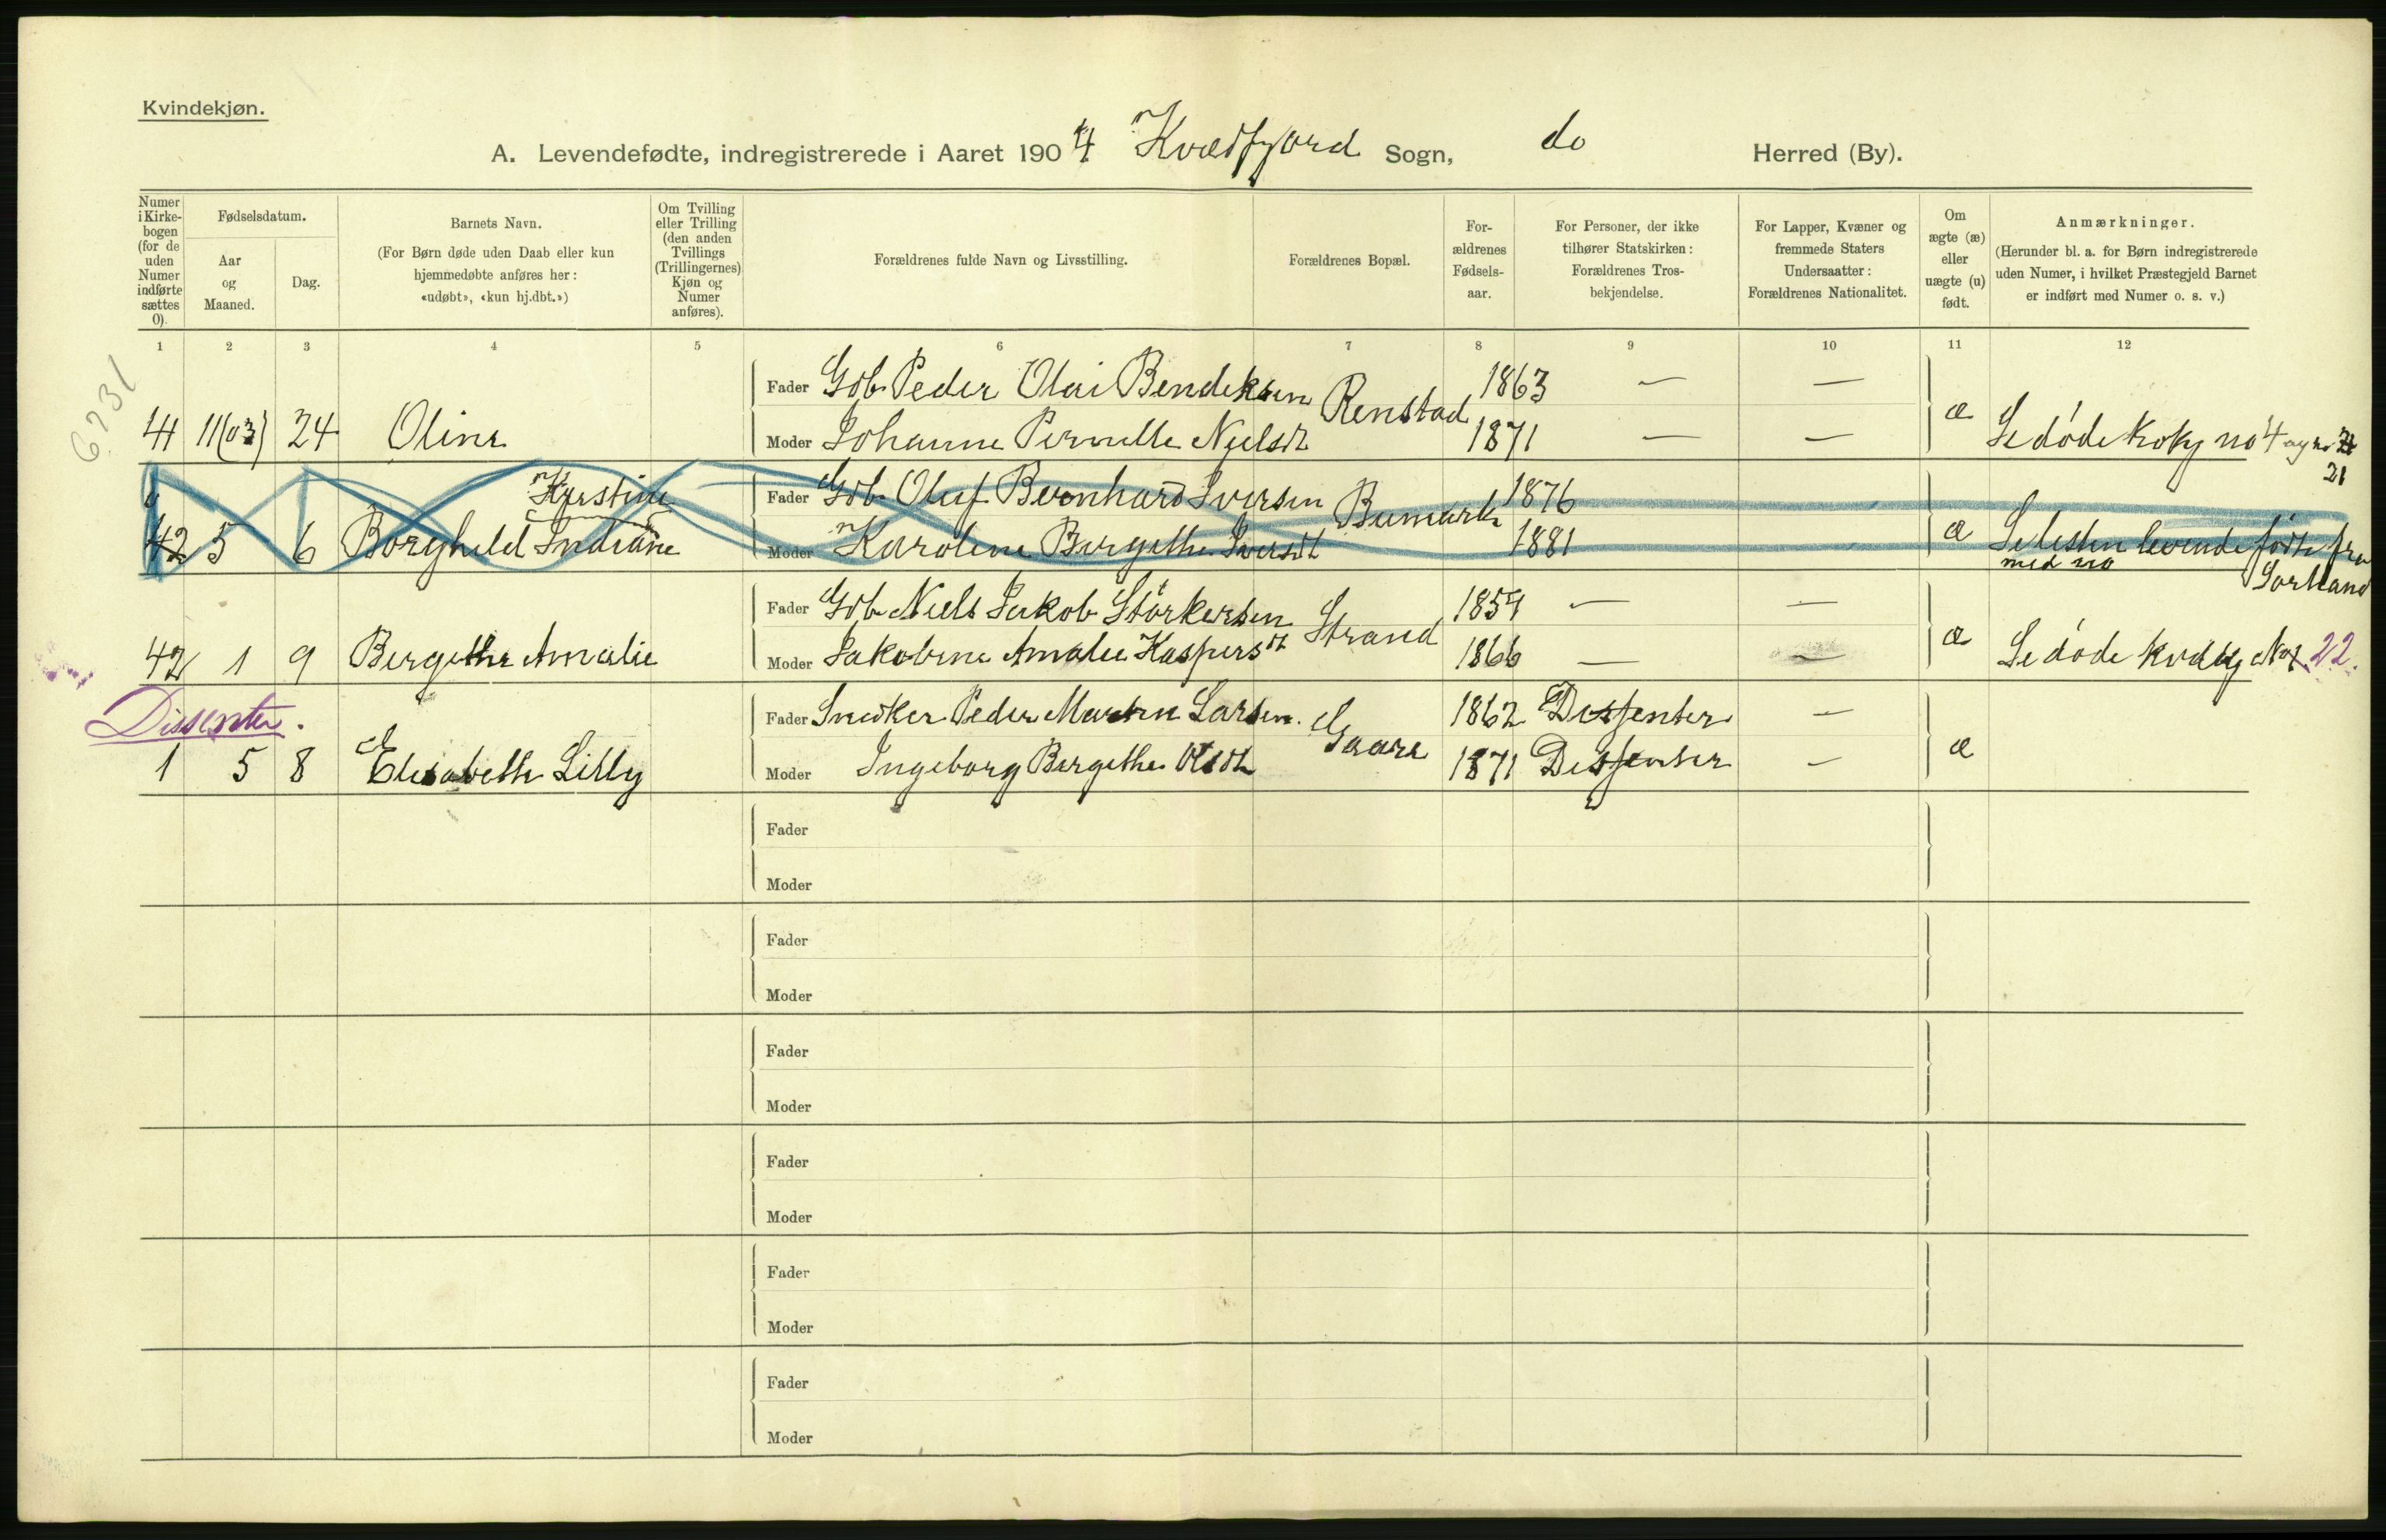 Kvindekjøn.
A. Levendefødte, indregistrerede i Aaret 1904 Kvædfjord Sogn, do Herred (By).
Numer i Kirkebogen (for de uden Numer indførte sættes 0).
Fødselsdatum.
Aar og Maaned.
Dag.
Barnets Navn.
(For Børn døde uden Daab eller kun hjemmedøbte anføres her: «udøbt», «kun hj.dbt.»)
Om Tvilling eller Trilling (den anden Tvillings (Trillingernes) Kjøn og Numer anføres).
Forældrenes fulde Navn og Livsstilling.
Forældrenes Bopæl.
Forældrenes Fødselsaar.
For Personer, der ikke tilhører Statskirken: Forældrenes Trosbekjendelse.
For Lapper, Kvæner og fremmede Staters Undersaatter: Forældrenes Nationalitet.
Om ægte (æ) eller uægte (u) født.
Anmærkninger.
(Herunder bl. a. for Børn indregistrerede uden Numer, i hvilket Præstegjeld Barnet er indført med Numer o. s. v.)
1 2 3 4 5 6 7 8 9 10 11 12
6731
Fader Gdb Peder Olai Bendiksen Renstad 1863 — —
41 11(03) 24 Oline Moder Johanne Pernille Nielsdt 1871 — — æ Se døde kvkj no 4 og no
21
0 Kristine Fader Gdb Oluf Bernhard Iversen Bumark 1876
42 5 6 Borghild Indiane Moder Karoline Bergithe Iversdt 1881 æ Se listen levende fødte fra
med no Sortland
Fader Gdb Niels Jakob Storkersen Strand 1859 — —
42 1 9 Bergithe Amalie Moder Jakobine Amalie Kaspersdt 1866 — — æ Se døde kvdkj No 22.
Dissenter.
Fader Snedker Peder Martin Larsen. Gaare 1862 Dissenter —
1 5 8 Elisabeth Lilly Moder Ingeborg Bergithe Olsdt 1871 Dissenter — æ
Fader
Moder
Fader
Moder
Fader
Moder
Fader
Moder
Fader
Moder
Fader
Moder